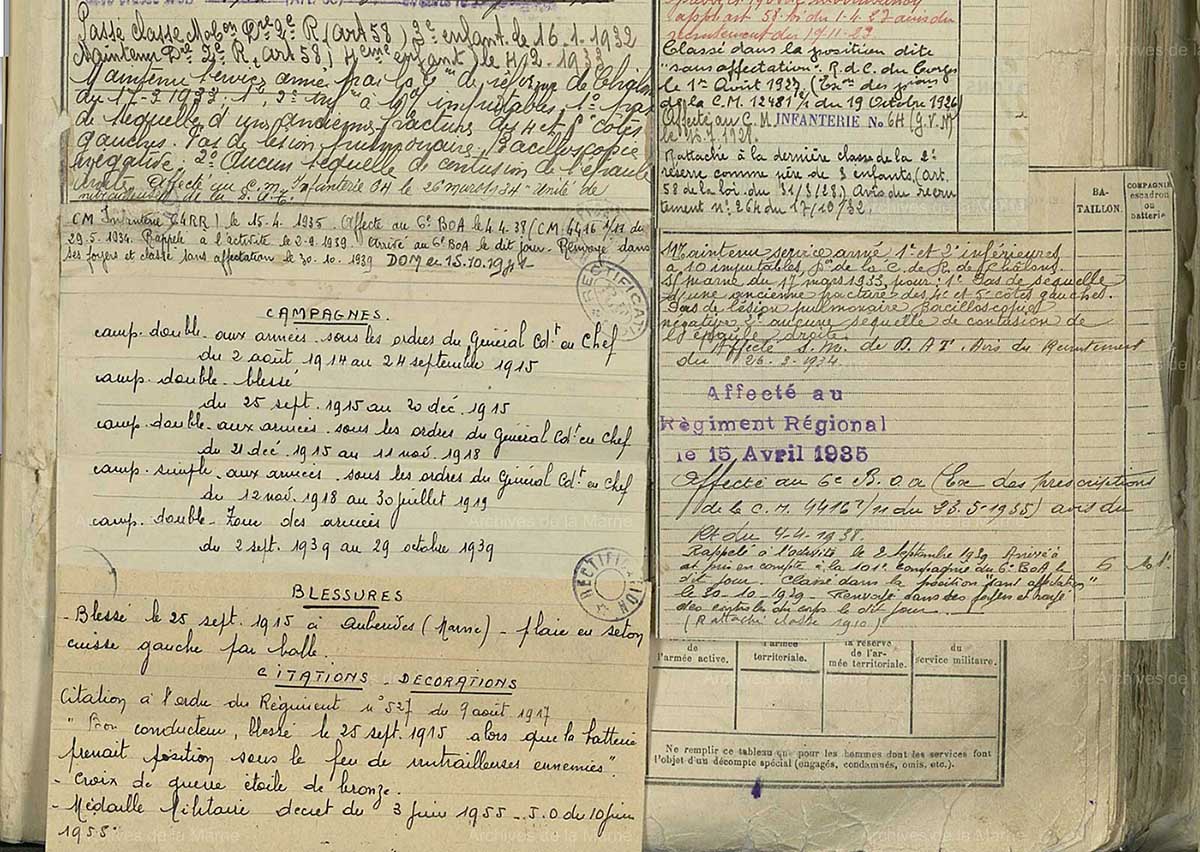 Passé classe Mob^on D^re 2^e R (art 58) 3^e enfant le 16-1-1932
Maintenu D^re 2^e R. (art 58) 4^eme enfant le 4/2-1933
Maintenu service armé par la C^on de réforme de Châlons
du 17-3-1933; 1°, 2° inf^rs à 10% imputables. 1° pas
de séquelle d'une ancienne fracture des 4^e et 5^e côtes
gauches. Pas de lésion pulmonaire, Bacilloscopie
négative; 2° Aucune séquelle de contusion de l'épaule
droite. Affecté au C.M. Infanterie 6H le 26 mars 1934
CM Infanterie (4RR) le 15.4.1935. Affecté au 6^e BOA le 4.4.38 (CM 4416 1/11 du
29.5.1934. Rappelé à l'activité le 2.9.1939. Arrivé au 6^e BOA le dit jour. Renvoyé dans
ses foyers et classé sans affectation le 30.10.1939
CAMPAGNES.
camp. double. aux armées sous les ordres du Général Cd^t en Chef
du 2 août 1914 au 24 septembre 1915
camp. double. blessé
du 25 sept. 1915 au 20 déc. 1915
camp. double. aux armées. sous les ordres du Général Cd^t en Chef
du 21 déc. 1915 au 11 nov. 1918
camp. simple. aux armées sous les ordres du Général Cd^t en Chef
du 12 nov. 1918 au 30 juillet 1919
camp. double. Zone des armées
du 2 sept. 1939 au 29 octobre 1939
RECTIFICATION
BLESSURES
- Blessé le 25 sept. 1915 à Auberives (Marne) - plaie en seton
cuisse gauche par balle.
CITATIONS - DECORATIONS
Citation à l'ordre du Régiment n° 527 du 9 août 1917
"Bon conducteur, blessé le 25 sept. 1915 alors que la batterie
prenait position sous le feu de mitrailleuses ennemies".
- Croix de guerre étoile de bronze.
- Médaille Militaire décret du 3 juin 1955 - J.O du 10 juin
1955
recrutement du 19-11-23
Classé dans la position dite
"sans affectation". R.d.C. du Corps
le 1^er Avril 1927,
de la C.M. 12481 du 19 Octobre 1926
Affecté au C.M INFANTERIE N° 6H (G.V.M)
Rattaché à la dernière classe de la 2^e
réserve comme père de 3 enfants, (art.
58 de la loi du 31/3/28). Avis du recru-
tement n° 264 du 17/10/32.
BA-
TAILLON.
COMPAGNIE
escadron
ou
batterie
Maintenu service armé 1° et 2° inférieures
à 10 imputables, P^on de la C. de R. de Châlons
s/ marne du 17 mars 1933, pour: 1° Pas de séquelle
d'une ancienne fracture des 4^e et 5^e côtes gauches.
Pas de lésion pulmonaire Bacilloscopies
négative, 2° aucune séquelle de contusion de
l'épaule droite.
Affecté S.M. de D.A.T. Avis du Recrutement
du 26-3-1934.
Affecté au
Régiment Régional
le 15 Avril 1935
Affecté au 6^e B.O.A (Ex des prescriptions
de la C.M. 4416 /11 du 23.5.1935) avis du
Rt du 4-4-1938.
Rappelé à l'activité le 2 Septembre 1939 Arrivé à
et pris en compte à la 101^e compagnie du 6^e BOA le
dit jour. Classé dans la position "sans affectation"
le 30-10-1939 - Renvoyé dans ses foyers et rayé
des contrôles du corps le dit jour.
(Rattaché classe 1910)
6 101
de
l'armée active.
l'armée
territoriale.
la réserve
de l'ar-
mée territoriale.
du
service militaire.
Ne remplir ce tableau que pour les hommes dont les services font
l'objet d'un décompte spécial (engagés, condamnés, omis, etc.).
Archives de la Marne